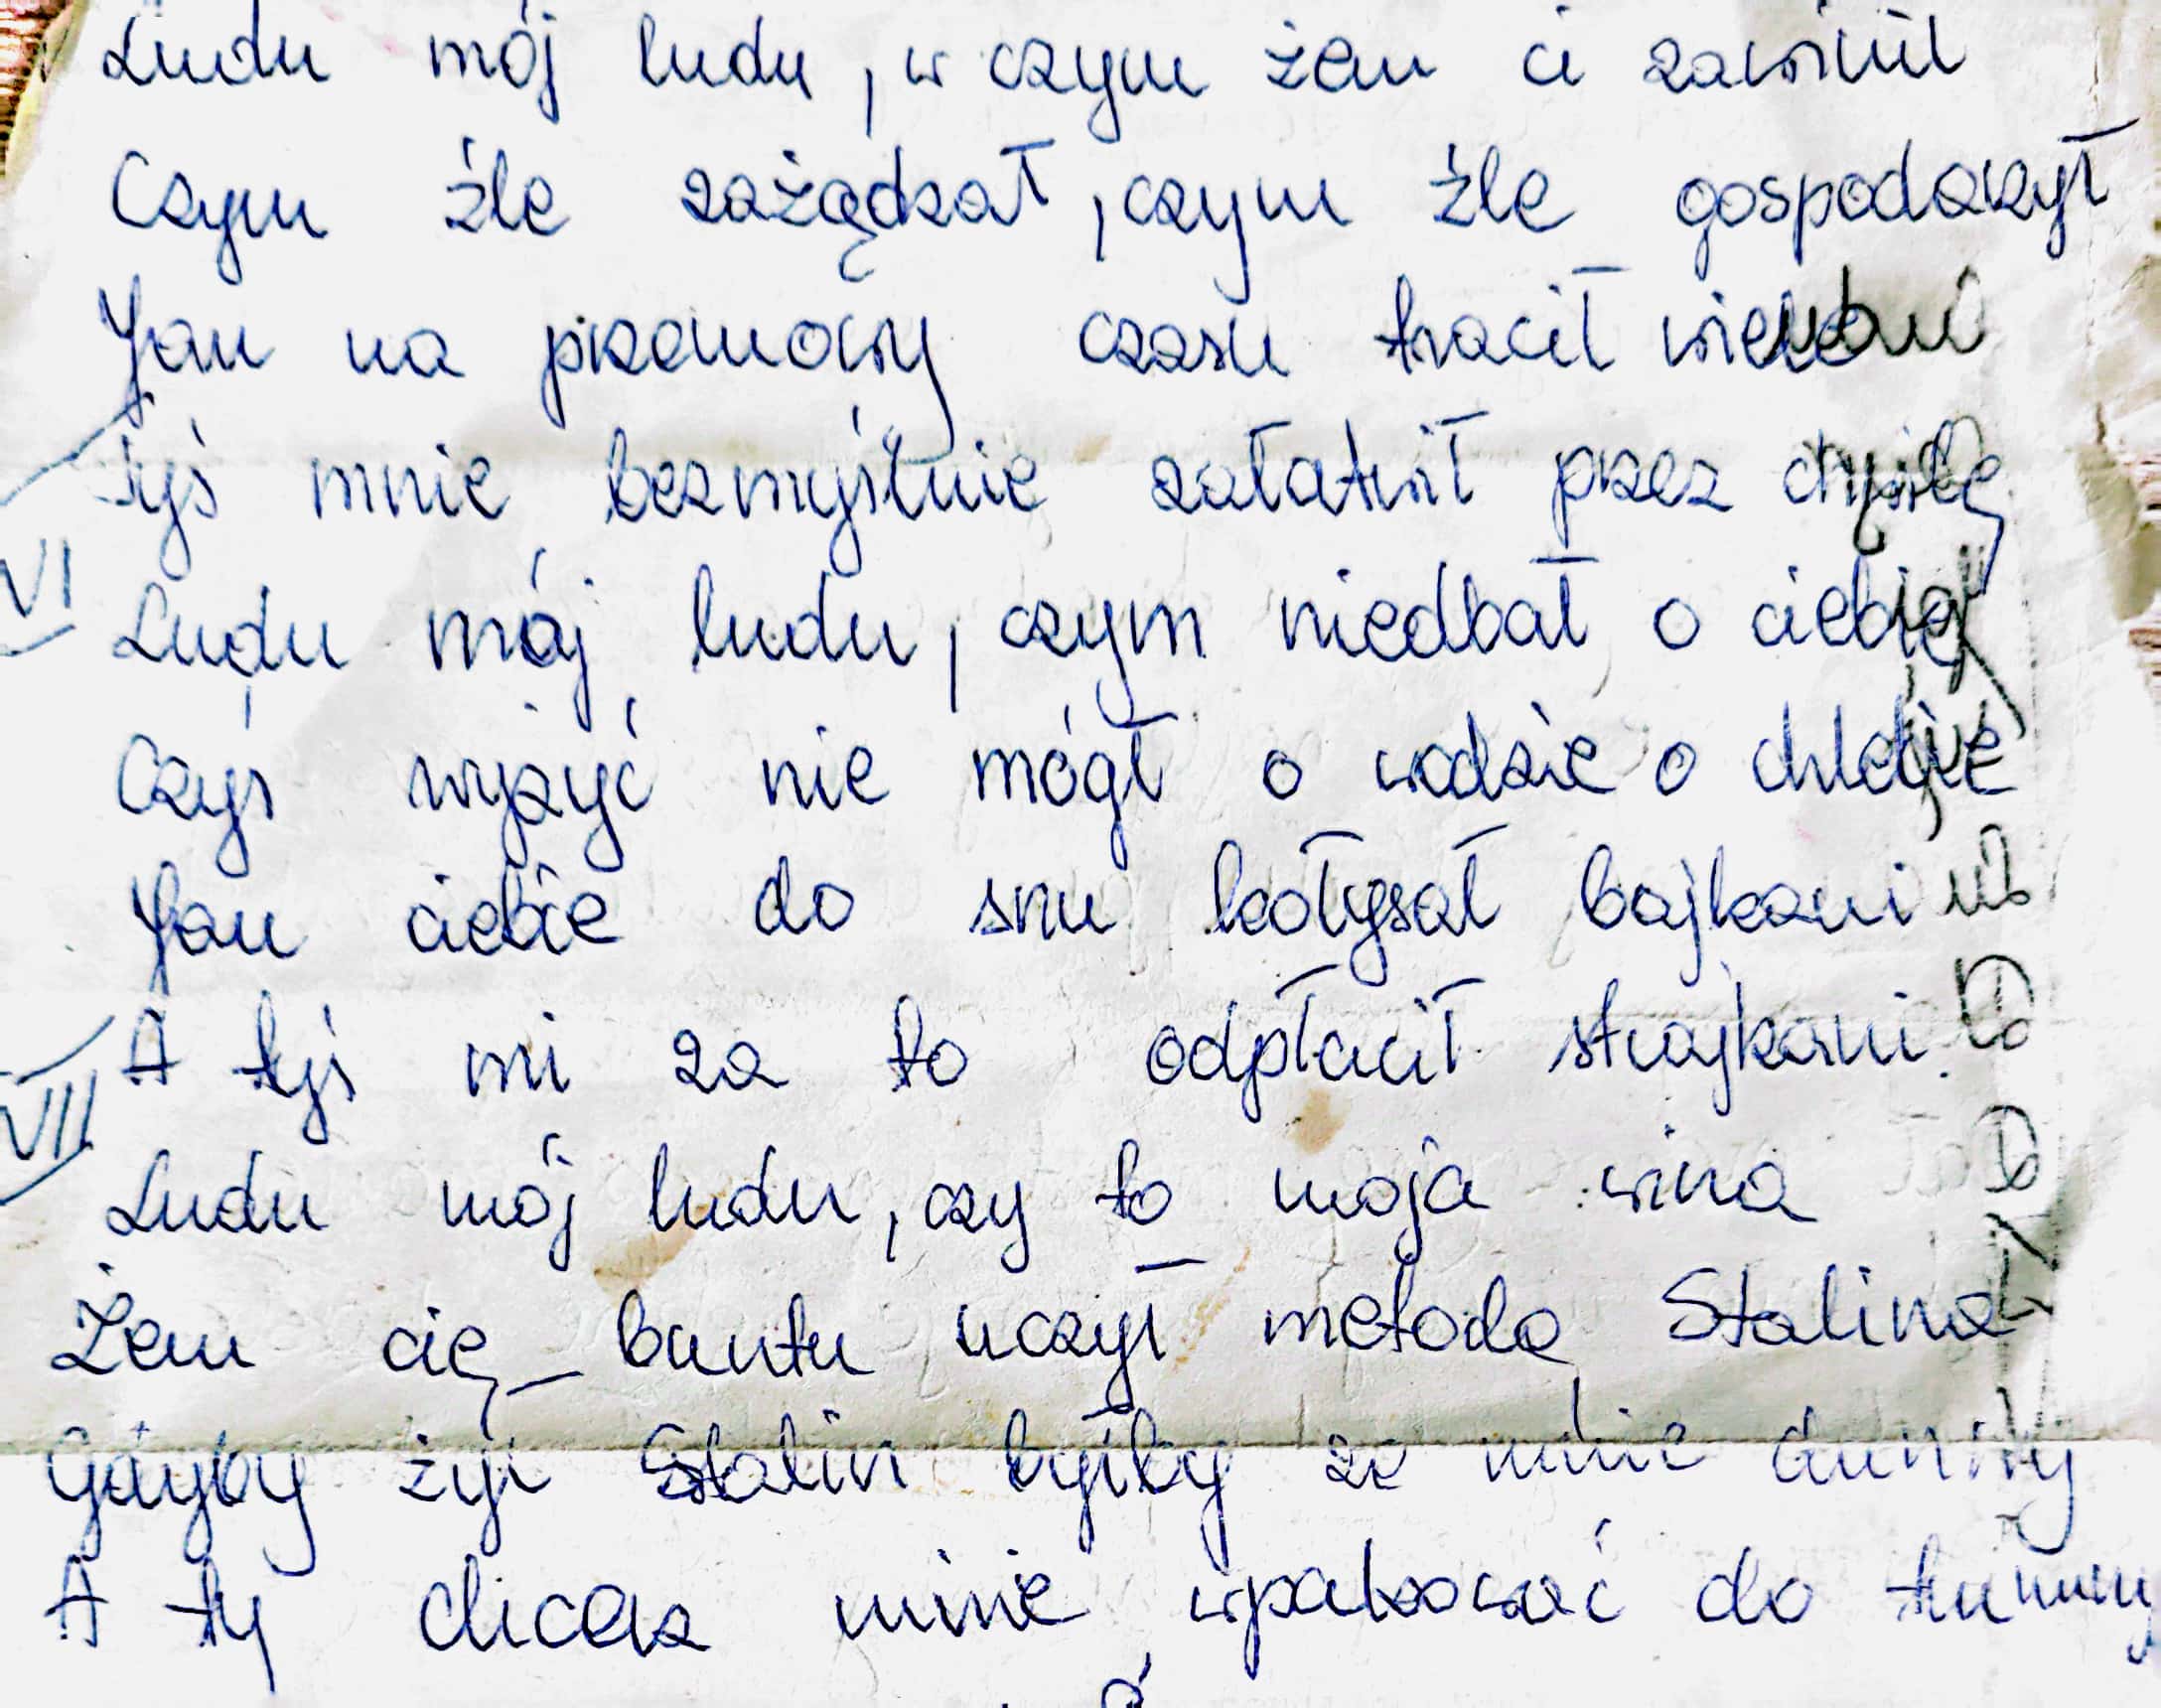 Ludu mój ludu, w czym żem ci zawinił
Czym źle zażądzał, czym źle gospodarzył
Jam na przemowy czasu tracił wiele
Tyś mnie bezmyślnie załatwił przez chwilę
VI
Ludu mój ludu, czym niedbał o ciebie
Czyś wyżyć nie mógł o wodzie o chlebie
Jam ciebie do snu kołysał bajkami
A tyś mi za to odpłacił strajkami.
VII
Ludu mój ludu, czy to moja wina
Żem cię buntu uczył metodą Stalina
Gdyby żył Stalin byłby ze mnie dumny
A ty chcesz mnie wpakować do trumny